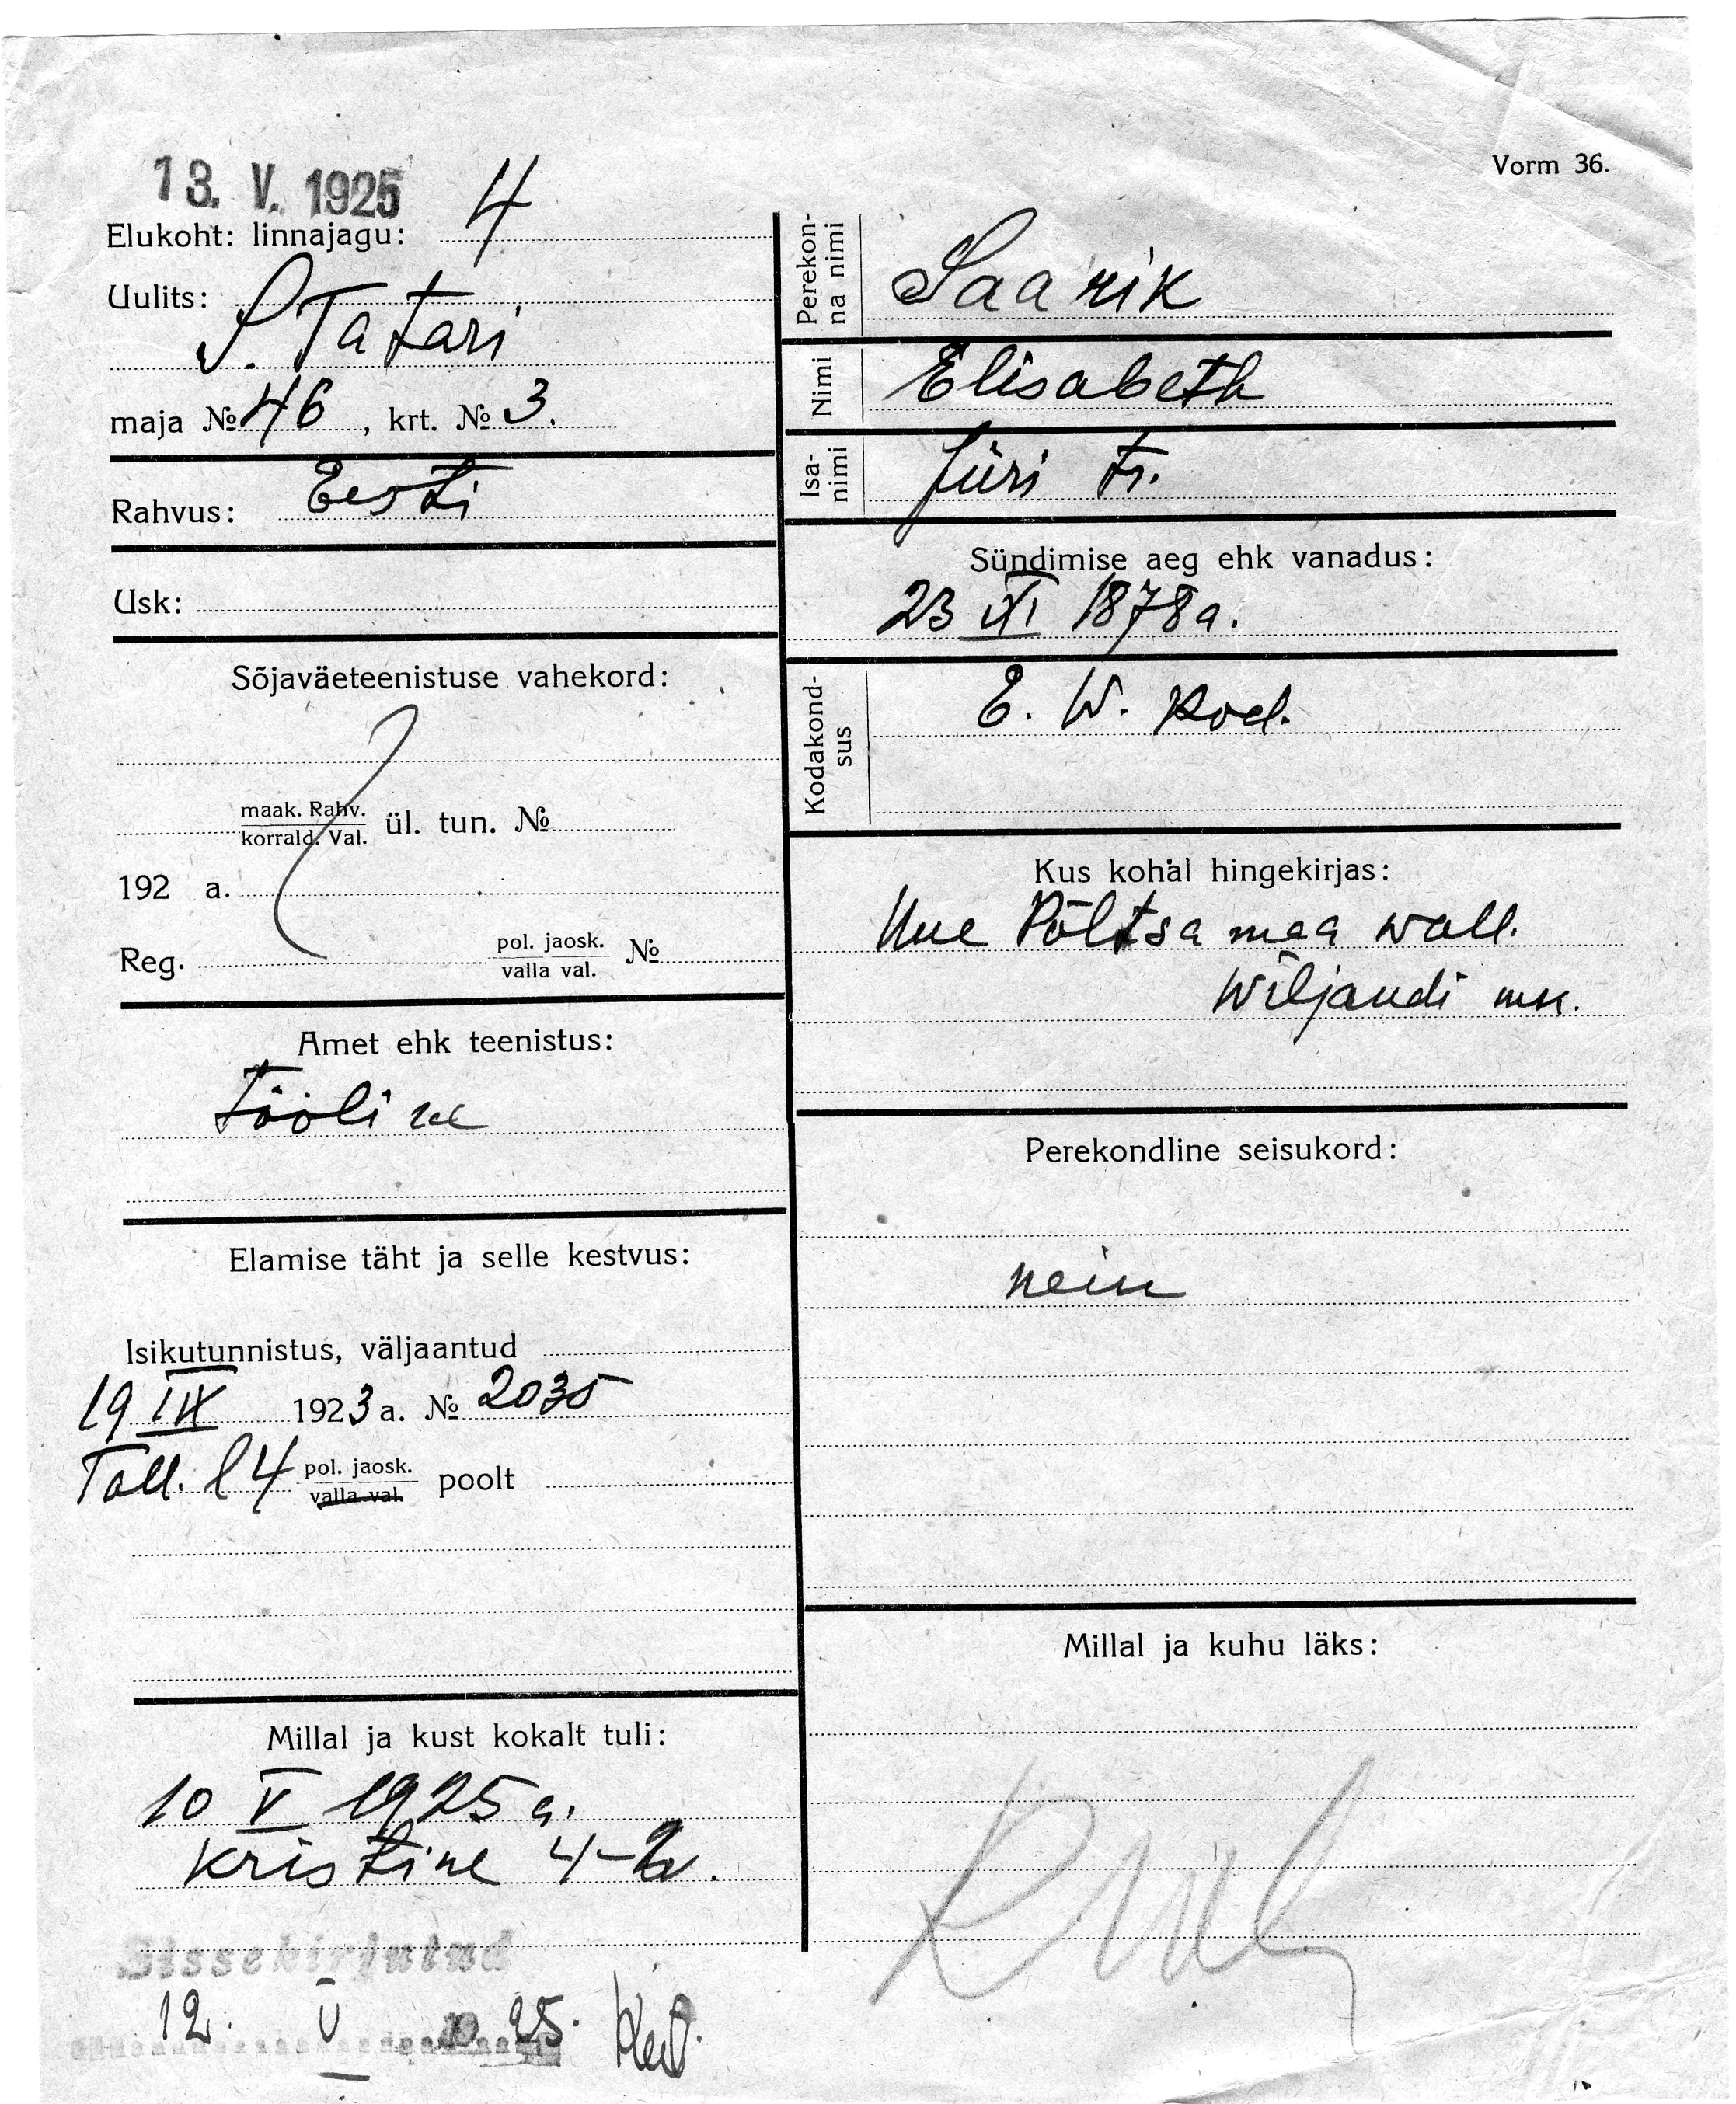 Vorm 36.
13. V. 1925
Elukoht: linnajagu: 4
Uulits:
S. Tatari
maja № 46, krt. № 3.
Rahvus: Eesti
Usk:
Sõjaväeteenistuse vahekord:
maak. Rahv.
korrald. Val. ül. tun. №
192 a.
Reg. pol. jaosk.
valla val. №
Amet ehk teenistus:
Tööline
Elamise täht ja selle kestvus:
Isikutunnistus, väljaantud
19 IX 1923 a. № 2035
Tall. l 4 pol. jaosk.
valla val. poolt
Millal ja kust kokalt tuli:
10 V 1925 a.
Kristine 4-
Sissekirjutud
12. V 1925.
Perekon-
na nimi
Saarik
Nimi Elisabeth
Isa-
nimi
Jüri tr.
Sündimise aeg ehk vanadus:
23 XI 1878 a.
Kodakond-
sus
E. W. kod.
Kus kohal hingekirjas:
Uue Põltsamaa wall.
Wiljandi mk.
Perekondline seisukord:
nein
Millal ja kuhu läks: